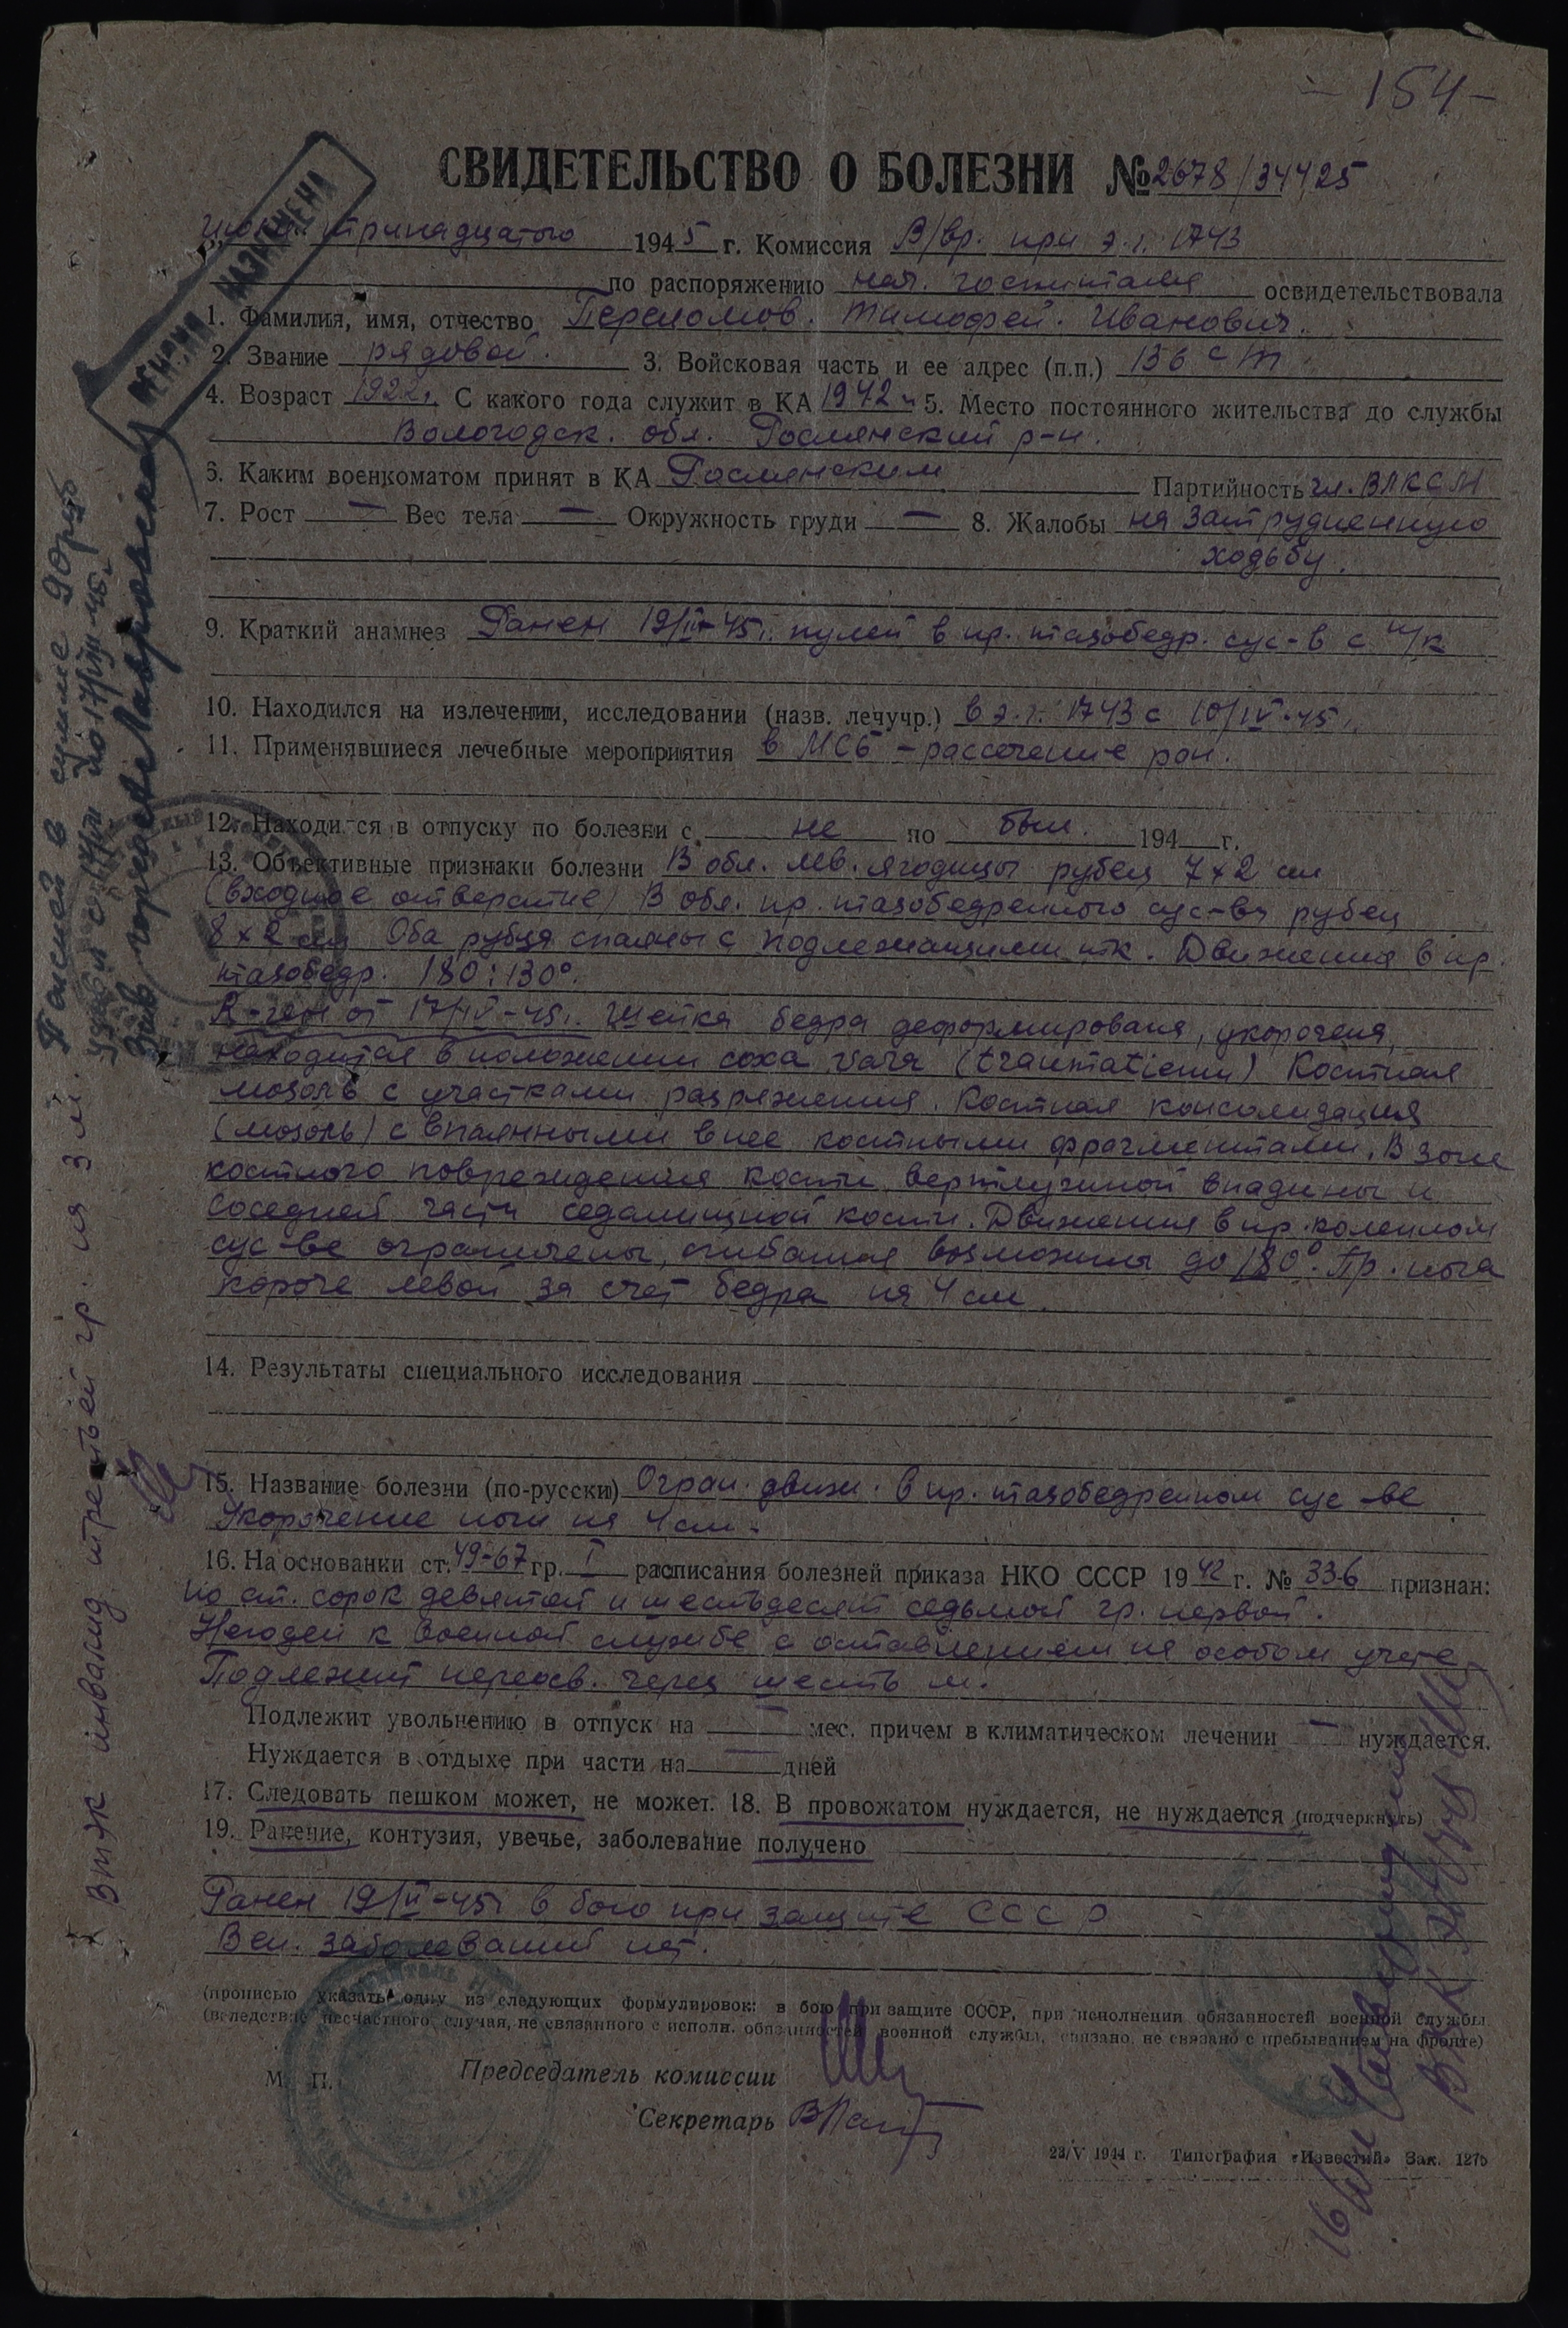 - 154 -
СВИДЕТЕЛЬСТВО О БОЛЕЗНИ № 2678/34425
тринадцатого 1945 г. Комиссия В/вр. при э.г. 1743
по распоряжению нач. госпиталя освидетельствовала
1. Фамилия, имя, отчество Переломов. Тимофей. Иванович.
2. Звание рядовой. 3. Войсковая часть и ее адрес (п.п.) 136 сп
4. Возраст 1922г. С какого года служит в КА 1942 г. 5. Место постоянного жительства до службы
Вологодск. обл. Рослянский р-н.
6. Каким военкоматом принят в КА Рослянским Партийность чл. ВЛКСМ
7. Рост — Вес тела — Окружность груди — 8. Жалобы на затрудненную
ходьбу.
9. Краткий анамнез Ранен 19/II-45г. пулей в пр. тазобедр. сус-в с п/к
10. Находился на излечении, исследовании (назв. лечучр.) в э.г. 1743 с 10/IV-45г.
11. Применявшиеся лечебные мероприятия в МСБ - рассечение ран.
12. Находился в отпуску по болезни с не по был. 194 г.
13. Объективные признаки болезни В обл. лев. ягодицы рубец 7x2 см
(входное отверстие) В обл. пр. тазобедренного сус-ва рубец
8x2 см Оба рубца спаяны с подлежащими тк. Движения в пр.
тазобедр. 180:130°.
R-ген от 17/IV-45г. Шейка бедра деформирована, укорочена,
находится в положении coxa vara (traumaticum) Костная
мозоль с участками разряжения. Костная консолидация
(мозоль) с впаянными в нее костными фрагментами. В зоне
костного повреждения кости вертлужной впадины и
соседней части седалищной кости. Движения в пр. коленном
сус-ве ограничены, сгибания возможны до 180°. Пр. нога
короче левой за счет бедра на 4 см.
14. Результаты специального исследования
15. Название болезни (по-русски) Огран. движ. в пр. тазобедренном сус-ве
Укорочение ноги на 4 см.
16. На основании ст. 49-67 гр. I расписания болезней приказа НКО СССР 1942 г. № 336 признан:
по ст. сорок девятой и шестьдесят седьмой гр. первой.
Негоден к военной службе с оставлением на особом учете
Подлежит переосв. через шесть м.
Подлежит увольнению в отпуск на — мес. причем в климатическом лечении — нуждается.
Нуждается в отдыхе при части на — дней
17. Следовать пешком может, не может. 18. В провожатом нуждается, не нуждается (подчеркнуть)
19. Ранение, контузия, увечье, заболевание получено
Ранен 19/II-45г. в бою при защите СССР
Вен. заболеваний нет.
(прописью указать одну из следующих формулировок: в бою при защите СССР, при исполнении обязанностей военной службы,
(вследствие несчастного случая, не связанного с исполн. обязанностей военной службы, связано, не связано с пребыванием на фронте)
М. П. Председатель комиссии
Секретарь
23/V 1944 г. Типография «Известий» Зак. 1275
ВТЭК инвалид третьей гр. на 3 м.
Пенсией в сумме 90 руб
Зав горсобесом
ПЕНСИЯ НАЗНАЧЕНА